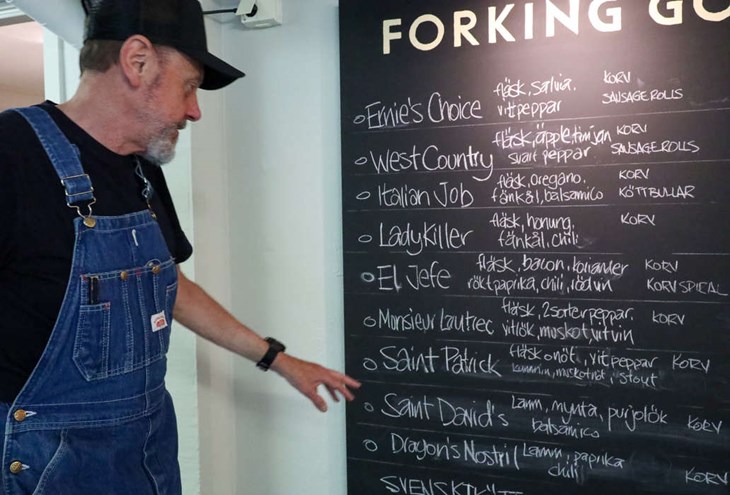 FORKING GO
Ernie's Choice fläsk, salvia, KORV
vitpeppar SAUSAGE ROLLS
West Country fläsk, äpple, timjan KORV
svart peppar SAUSAGE ROLLS
Italian Job fläsk, oregano, KORV
fänkål, balsamico KÖTTBULLAR
LadyKiller fläsk, honung, KORV
fänkål, chili
El Jefe fläsk, bacon, koriander KORV
rökt paprika, chili, rödvin KORVSPICAL
Monsieur Lautrec fläsk, 2 sorter peppar, KORV
vitlök, muskot, vitvin
Saint Patrick fläsk o nöt, vitpeppar KORV
muskotnöt, stout
Saint David's Lamm, mynta, purjolök KORV
balsamico
Dragon's Nostril Lamm, paprika KORV
chili